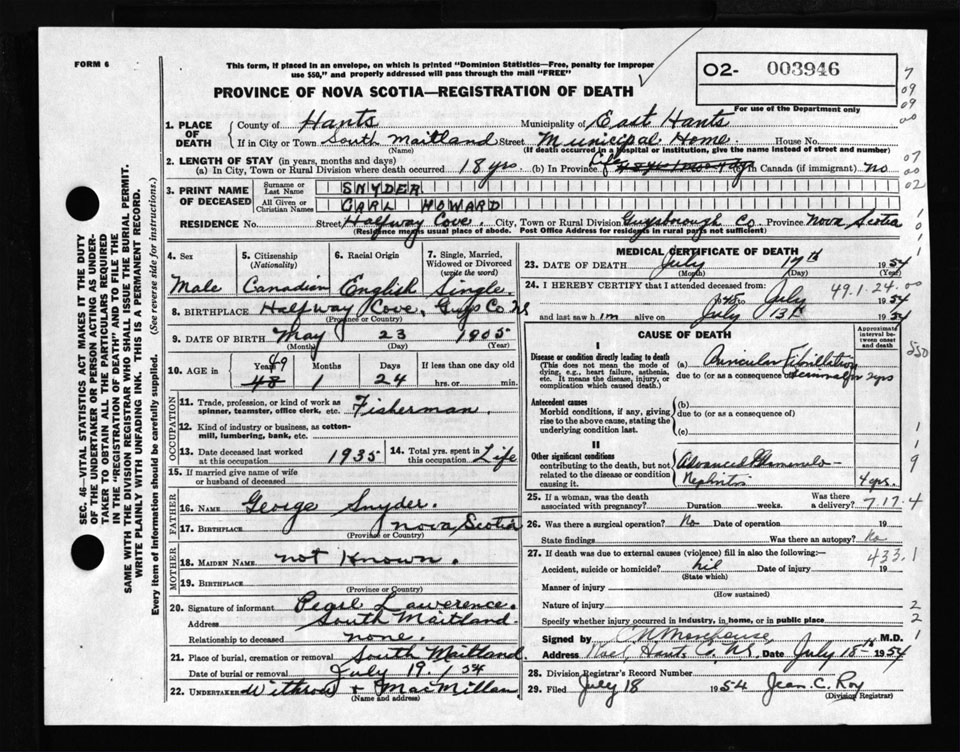 FORM 6
This form, if placed in an envelope, on which is printed "Dominion Statistics—Free, penalty for improper
use $50," and properly addressed will pass through the mail "FREE"
O2- 003946
For use of the Department only
PROVINCE OF NOVA SCOTIA—REGISTRATION OF DEATH
1. PLACE OF DEATH County of Hants Municipality of East Hants
If in City or Town South Maitland Street Municipal Home House No.
(Name) (If death occurred in a hospital or institution, give the name instead of street and number)
2. LENGTH OF STAY (in years, months and days)
(a) In City, Town or Rural Division where death occurred 18 yrs (b) In Province Life (c) In Canada (if immigrant) no
3. PRINT NAME OF DECEASED Surname or Last Name SNYDER
All Given or Christian Names CARL HOWARD
RESIDENCE No. Street Halfway Cove. City, Town or Rural Division Guysborough Co Province Nova Scotia
(Residence means usual place of abode. Post Office Address for residents in rural parts not sufficient)
4. Sex Male
5. Citizenship (Nationality) Canadian
6. Racial Origin English
7. Single, Married, Widowed or Divorced (write the word) Single.
8. BIRTHPLACE Halfway Cove, Guys Co NS
(Province or Country)
9. DATE OF BIRTH May 23 1905
(Month) (Day) (Year)
10. AGE in Years 48 49 Months 1 Days 24 If less than one day old
hrs. or min.
OCCUPATION
11. Trade, profession, or kind of work as spinner, teamster, office clerk, etc. Fisherman.
12. Kind of industry or business, as cotton-mill, lumbering, bank, etc.
13. Date deceased last worked at this occupation 1935
14. Total yrs. spent in this occupation Life
15. If married give name of wife or husband of deceased
FATHER
16. NAME George Snyder.
17. BIRTHPLACE Nova Scotia
(Province or Country)
MOTHER
18. MAIDEN NAME not Known.
19. BIRTHPLACE
(Province or Country)
20. Signature of informant Pearl Lawerence.
Address South Maitland
Relationship to deceased none.
21. Place of burial, cremation or removal South Maitland
Date of burial or removal July 19. / 54
22. UNDERTAKER Withrow & MacMillan
(Name and address)
MEDICAL CERTIFICATE OF DEATH
23. DATE OF DEATH July 17th 1954
(Month) (Day) (Year)
24. I HEREBY CERTIFY that I attended deceased from:
49.1.24.00
1948 to July 1954
and last saw him alive on July 13th 1954
CAUSE OF DEATH
Approximate interval between onset and death
I
Disease or condition directly leading to death
(This does not mean the mode of dying, e.g., heart failure, asthenia, etc. It means the disease, injury, or complication which caused death.)
(a) Auricular Fibrillation
due to (or as a consequence of) 2 yrs
Antecedent causes
Morbid conditions, if any, giving rise to the above cause, stating the underlying condition last.
(b)
due to (or as a consequence of)
(c)
II
Other significant conditions
contributing to the death, but not related to the disease or condition causing it.
Advanced Glomerulo-
Nephritis 4 yrs.
25. If a woman, was the death associated with pregnancy? Duration weeks. Was there a delivery?
7.17.4
26. Was there a surgical operation? No Date of operation 19
State findings Was there an autopsy? No
27. If death was due to external causes (violence) fill in also the following:—
433.1
Accident, suicide or homicide? nil Date of injury 19
(State which)
Manner of injury
(How sustained)
Nature of injury
Specify whether injury occurred in industry, in home, or in public place
Signed by M.D.
Address Noel, Hants Co. N.S. Date July 18th 1954
28. Division Registrar's Record Number
29. Filed July 18 1954 Jean. C. Roy
(Division Registrar)
SEC. 46—VITAL STATISTICS ACT MAKES IT THE DUTY
OF THE UNDERTAKER OR PERSON ACTING AS UNDER-
TAKER TO OBTAIN ALL THE PARTICULARS REQUIRED
IN THE "REGISTRATION OF DEATH" AND TO FILE THE
SAME WITH THE DIVISION REGISTRAR WHO SHALL ISSUE THE BURIAL PERMIT.
WRITE PLAINLY WITH UNFADING INK. THIS IS A PERMANENT RECORD.
Every item of information should be carefully supplied. (See reverse side for instructions.)